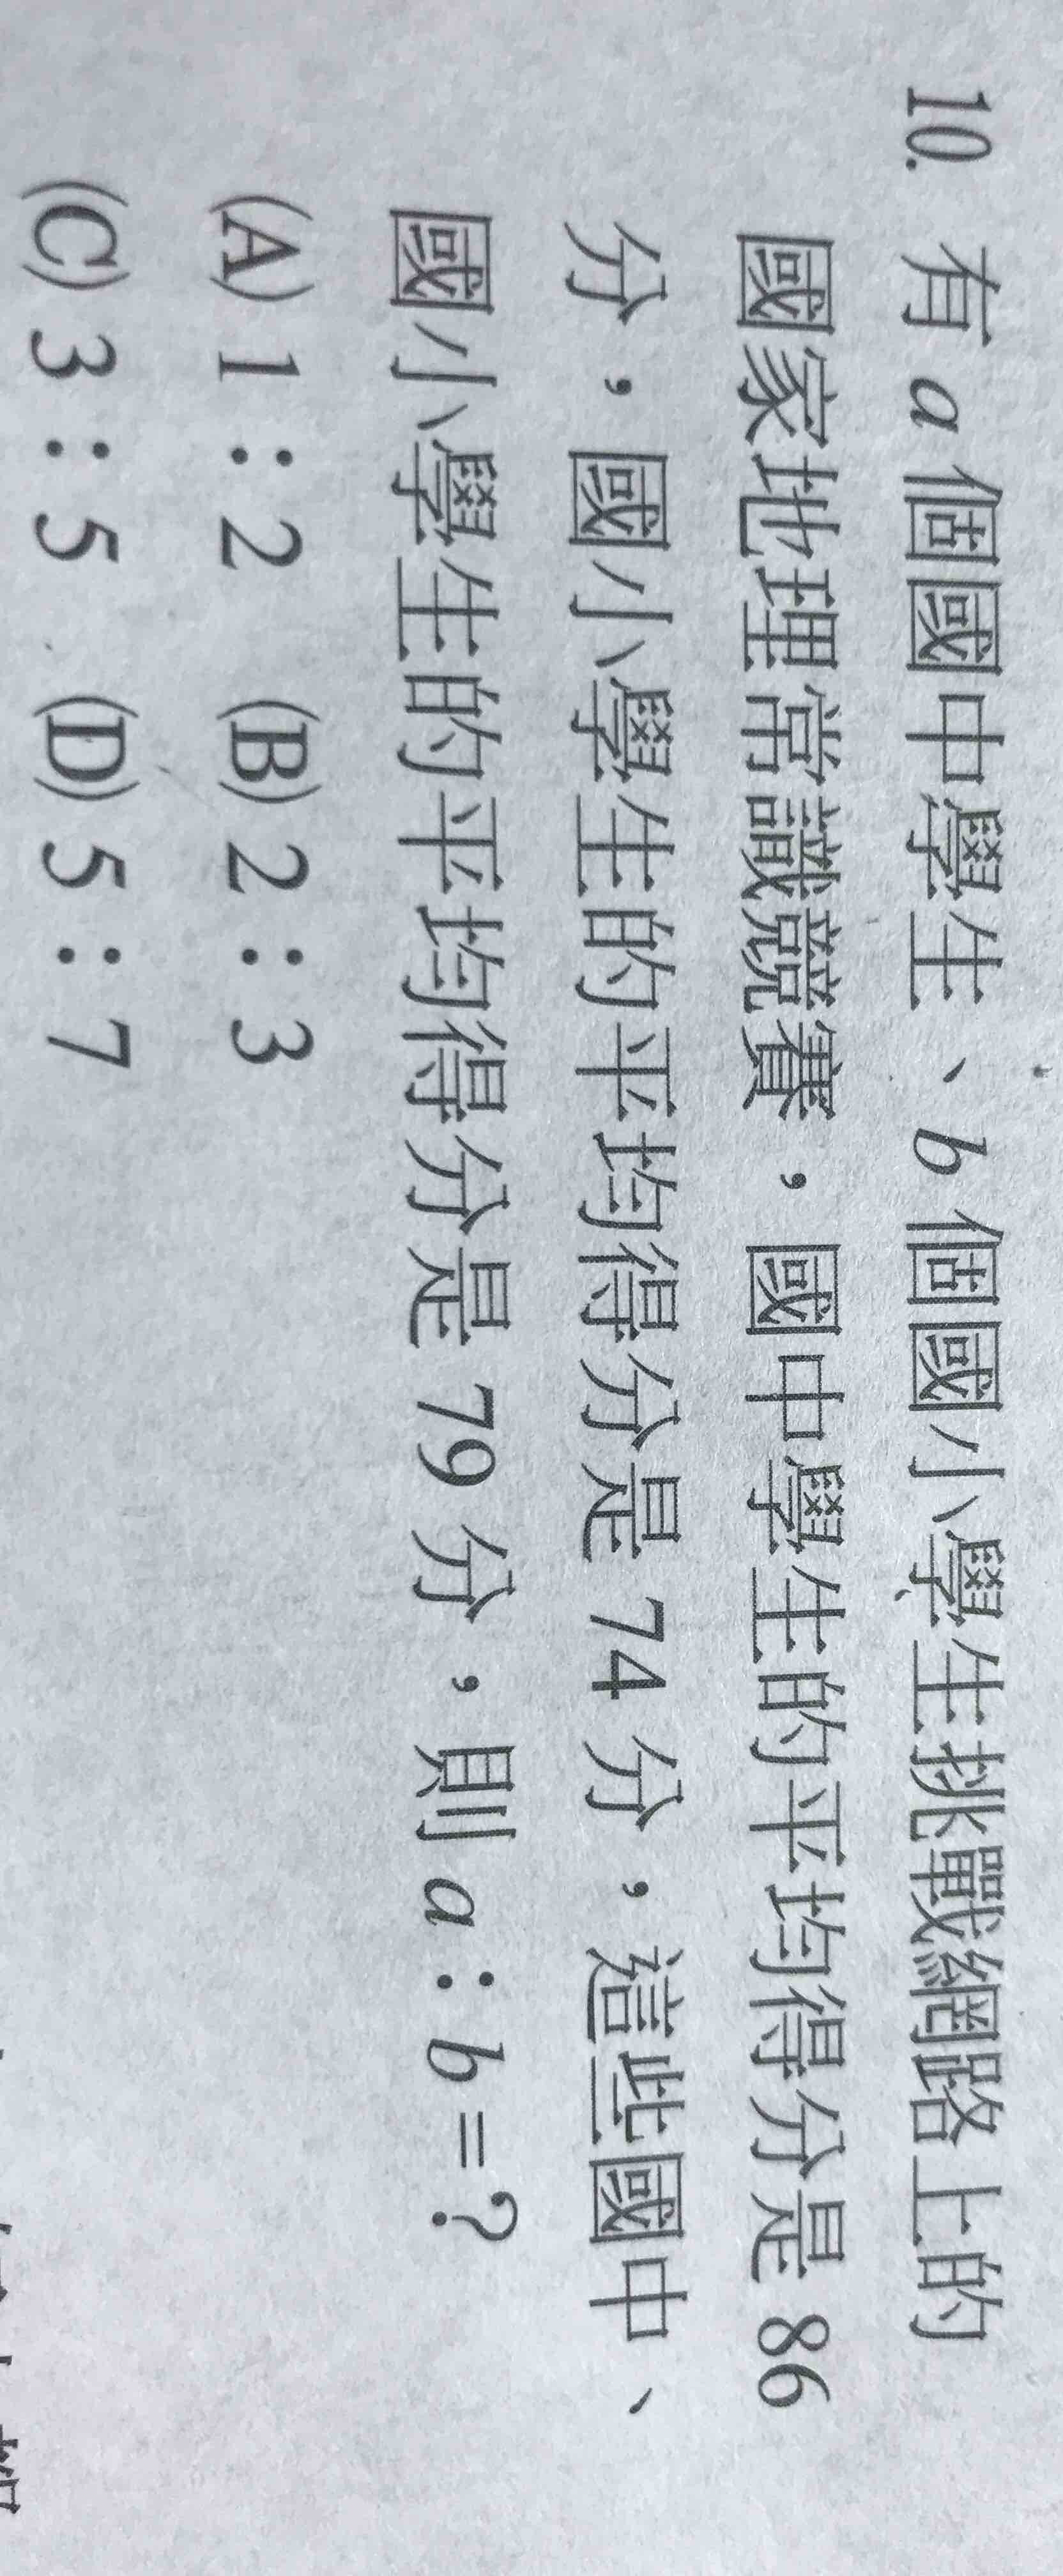 10. 有 a 個國中學生、b 個國小學生挑戰網路上的
國家地理常識競賽，國中學生的平均得分是 86
分，國小學生的平均得分是 74 分，這些國中、
國小學生的平均得分是 79 分，則 a：b＝？
(A) 1：2 (B) 2：3
(C) 3：5 (D) 5：7